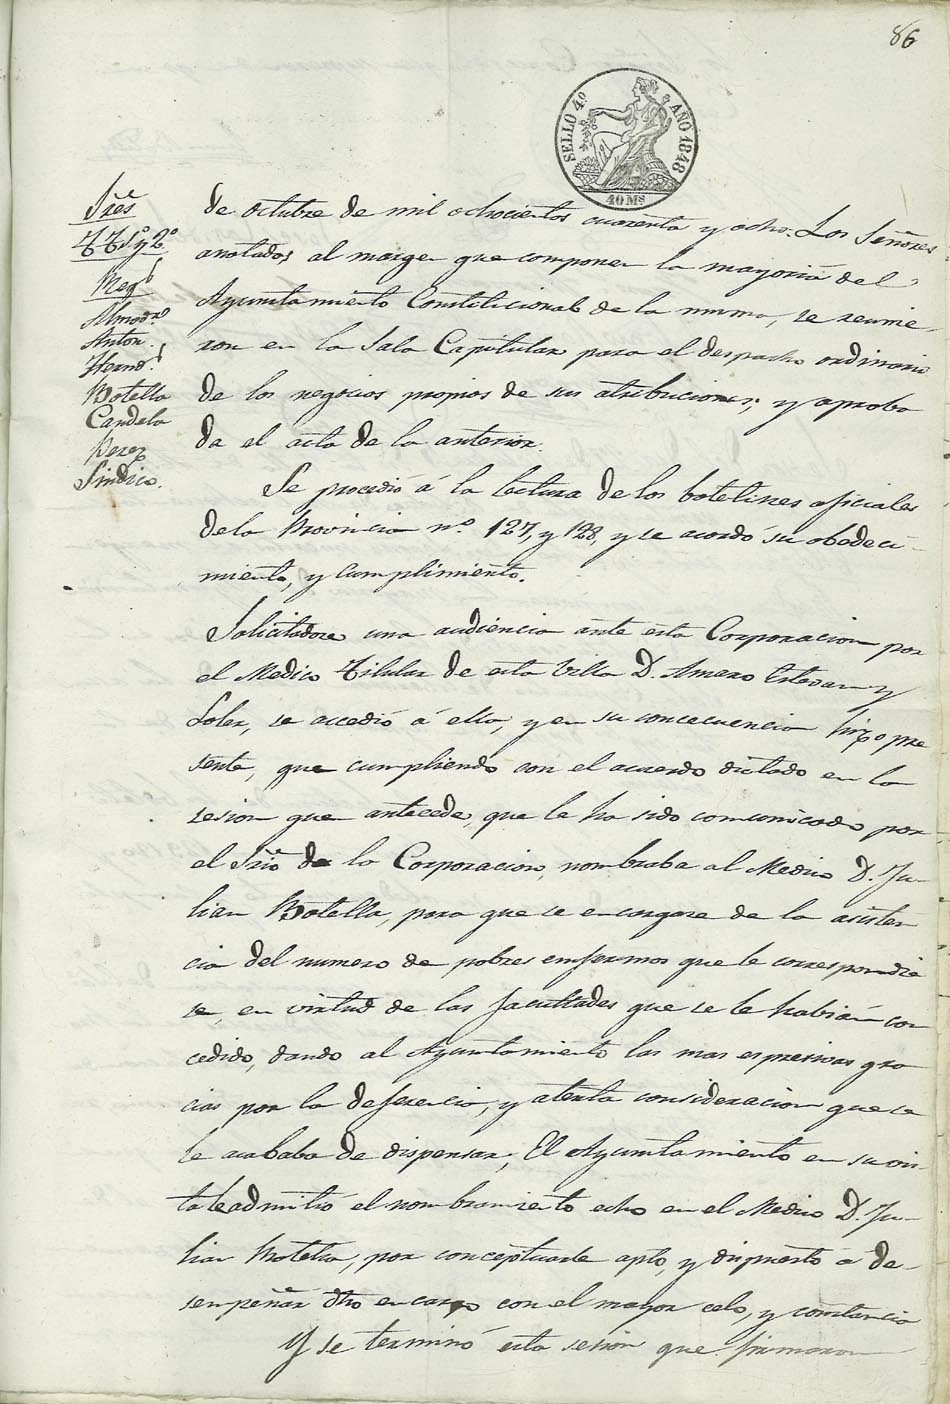 86
SELLO 4º AÑO 1848
40 Ms
Sres
TT 1º y 2º
Reg.s
Almodr.
Anton.
Hernd.
Botella
Candela
Perez
Sindico.
de Octubre de mil ochocientos cuarenta y ocho. Los Señores
anotados al margen que componen la mayoria del
Ayuntamiento Constitucional de la misma, se reunie-
ron en la Sala Capitular para el despacho ordinario
de los negocios propios de sus atribuciones; y aproba
da el acta de la anterior.
Se procedió á la lectura de los boletines oficiales
de la Provincia nº. 127, y 128, y se acordó su obedeci-
miento, y cumplimiento.
Solicitadose una audiencia ante esta Corporacion por
el Medico Titular de esta Villa D. Amaro Estevan y
Soler, se accedió á ello, y en su concecuencia hizo pre
sente, que cumpliendo con el acuerdo dictado en la
sesion que antecede, que le ha sido comunicado por
el Srio de la Corporacion, nombraba al Medico D. Ju-
lian Botella, para que se encargase de la asisten
cia del numero de pobres enfermos que le correspondie
se, en virtud de las facultades que se le habian con
cedido, dando al Ayuntamiento las mas espresivas gra
cias por la deferencia, y atenta consideracion que se
le acababa de dispensar; El Ayuntamiento en su vis-
ta le admitió el nombramiento echo en el Medico D. Ju-
lian Botella, por conceptuarle apto, y dispuesto a de-
sempeñar dho encargo con el mayor celo, y constancia
Y se terminó esta sesion que firmaron